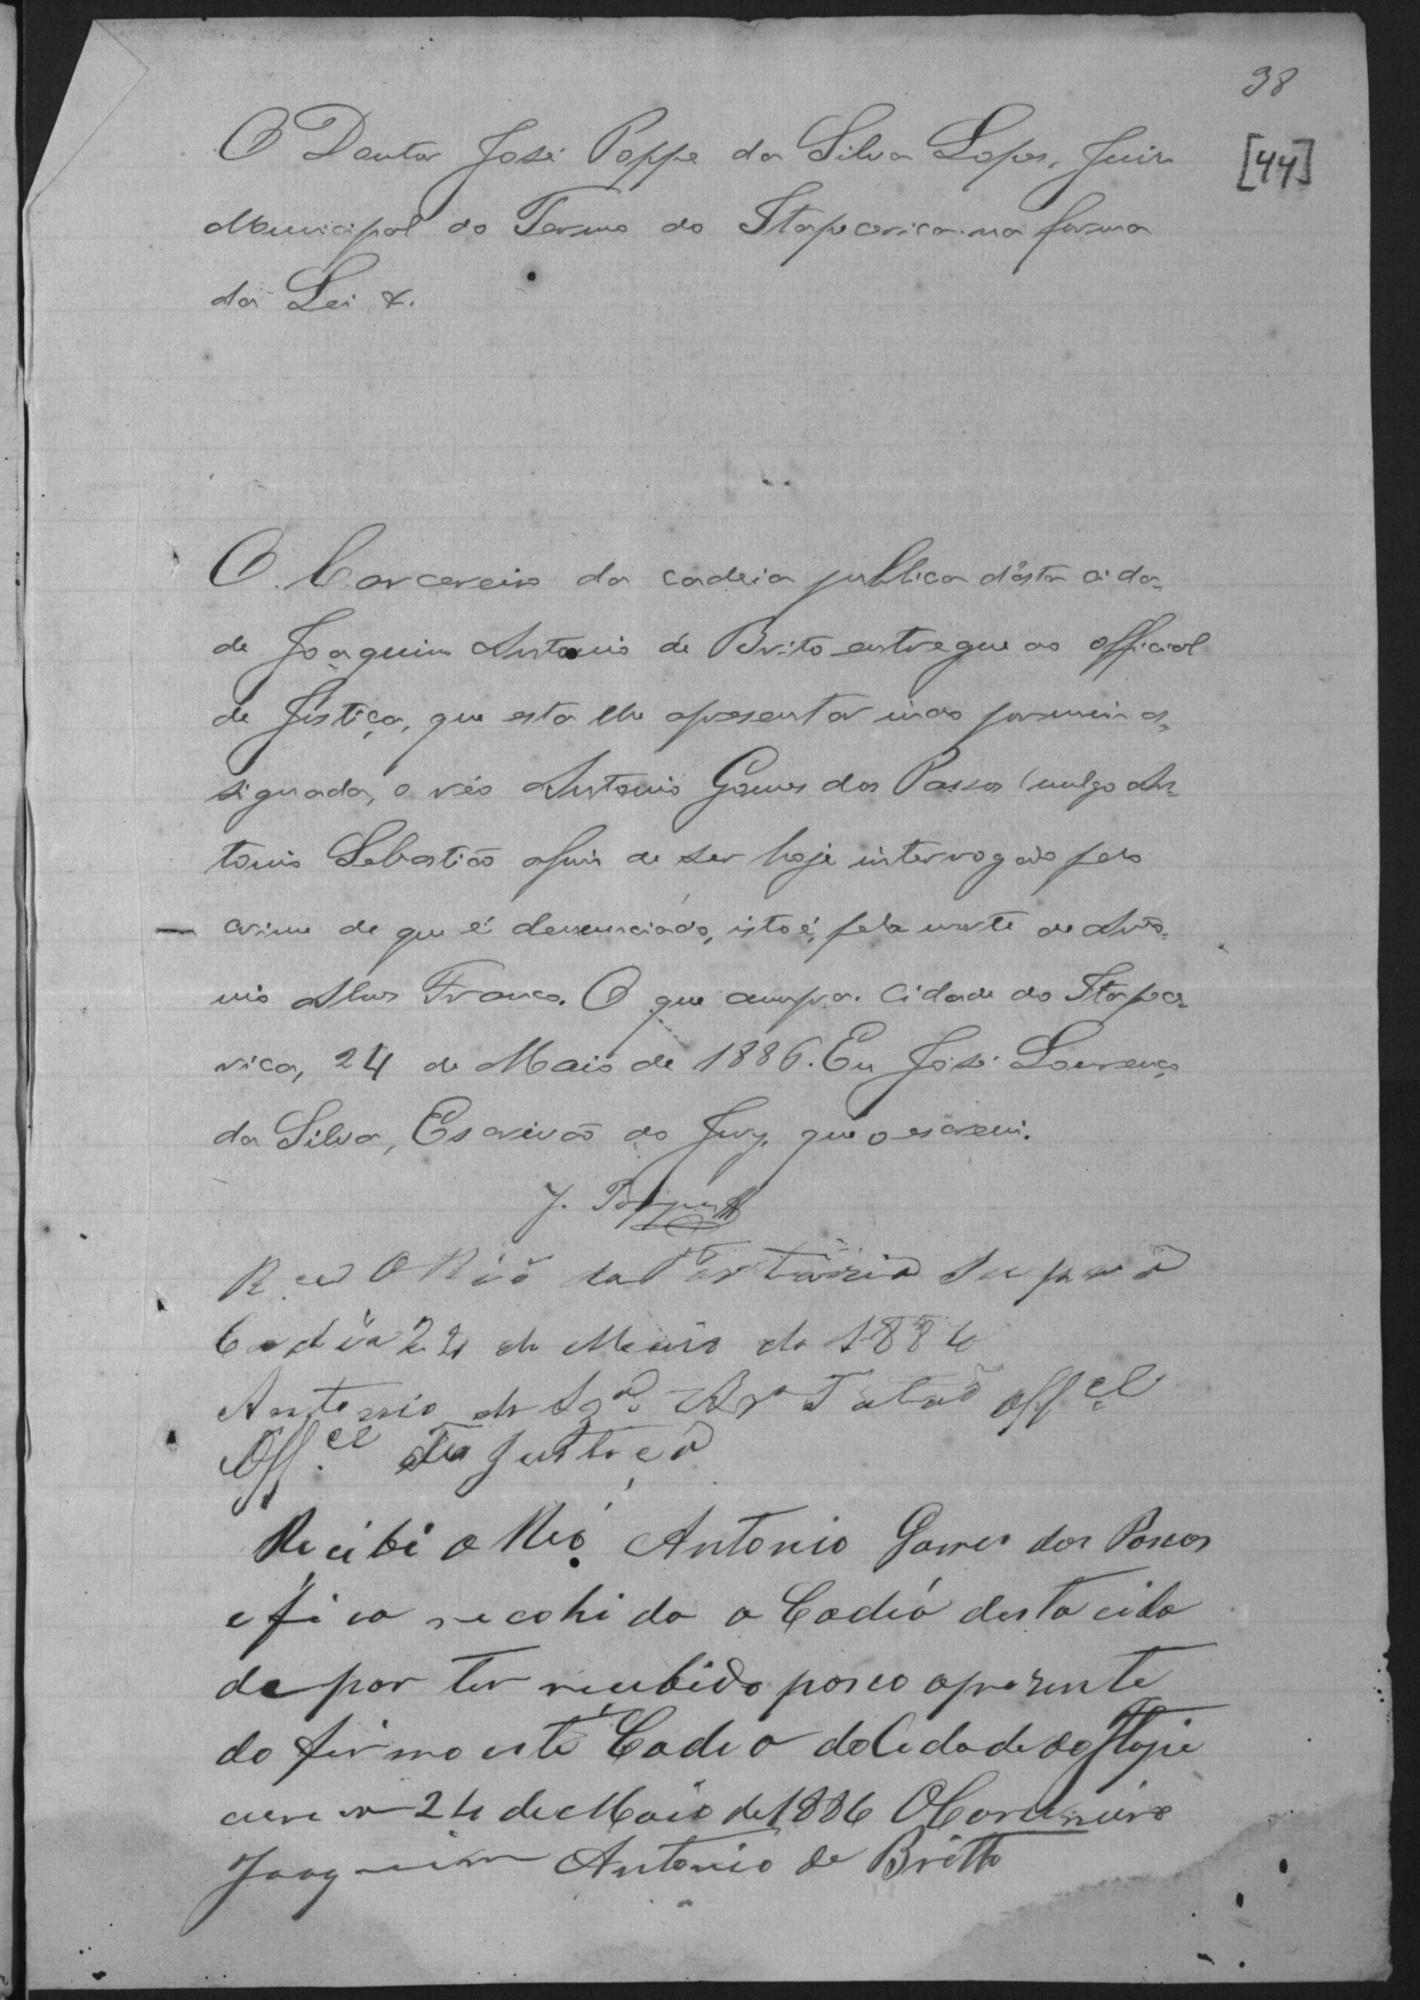 38
[44]
O Doutor José Poppe da Silva Lopes, Juiz
Municipal do Termo do Itapecerica na forma
da Lei &.
O Carcereiro da cadeia publica d'ésta cida-
de Joaquim Antonio de Brito entregue ao official
de Jistiça, que esta lhe apresentar indo por mim as-
signada, o réo Antonio Gomes dos Passos (vulgo An-
tonio Sebastião afim de ser hoje interrogado pelo
crime de que é denunciado, isto é, pela morte de Antõ-
nio Alves Franco. O que cumpra. Cidade do Itapece-
rica, 24 de Maio de 1886. Eu José Lourenço
da Silva, Escrivão do Jury, que o escrevi.
J. Poppe
O Réo da Portaria Supra
Cadéia 24 de Maio de 1886
Antonio de Off.el
Off.el de Justiça
Recibi o Reó Antonio Gomes dos Passos
e fica recohido a Cadéa desta cida
de por ter recibido posco a prezente
do firmo este Cadea da Cidade do Itape
cerica 24 de Maio de 1886 O Carcereiro
Joaquim Antonio de Britto